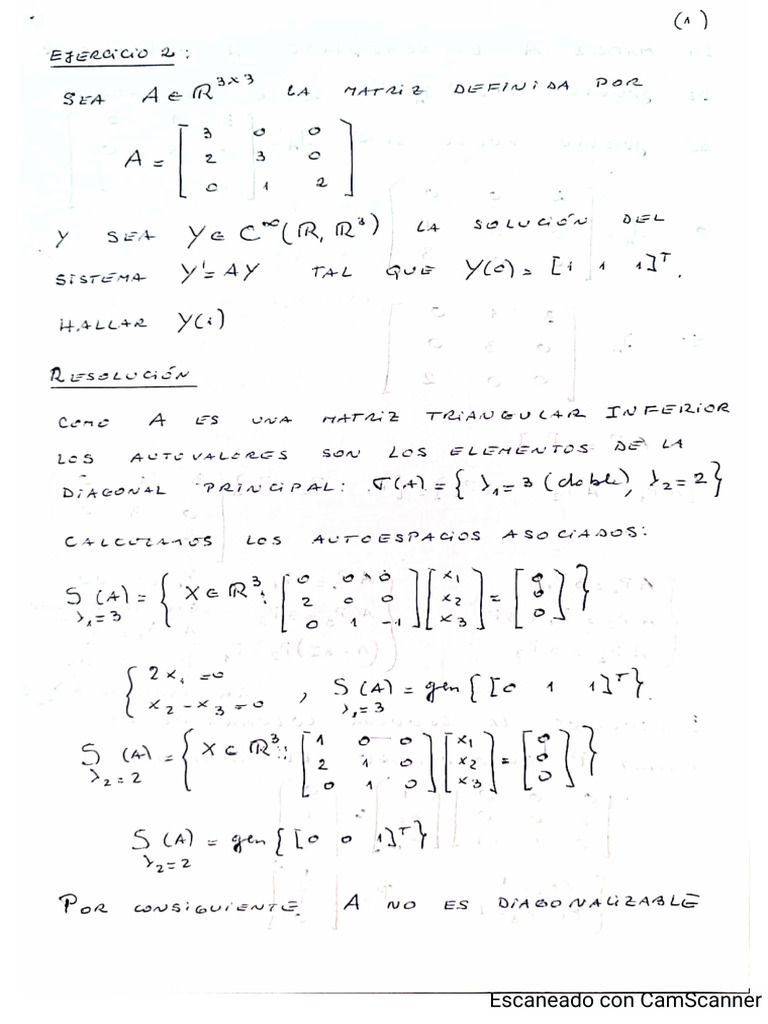 (1)
EJERCICIO 2:
SEA A ∈ ℝ^{3×3} LA MATRIZ DEFINIDA POR
A = [ 3 0 0
2 3 0
0 1 2 ]
Y SEA Y ∈ C^∞(ℝ, ℝ³) LA SOLUCIÓN DEL
SISTEMA Y' = AY TAL QUE Y(0) = [1 1 1]^T.
HALLAR Y(1)
RESOLUCIÓN
COMO A ES UNA MATRIZ TRIANGULAR INFERIOR
LOS AUTOVALORES SON LOS ELEMENTOS DE LA
DIAGONAL PRINCIPAL: σ(A) = { λ₁ = 3 (doble), λ₂ = 2 }
CALCULAMOS LOS AUTOESPACIOS ASOCIADOS:
S_{λ₁=3}(A) = { X ∈ ℝ³: [ 0 0 0 ; 2 0 0 ; 0 1 -1 ] [ x₁ ; x₂ ; x₃ ] = [ 0 ; 0 ; 0 ] }
{ 2x₁ = 0 ; x₂ - x₃ = 0 , S_{λ₁=3}(A) = gen{ [0 1 1]^T }
S_{λ₂=2}(A) = { X ∈ ℝ³: [ 1 0 0 ; 2 1 0 ; 0 1 0 ] [ x₁ ; x₂ ; x₃ ] = [ 0 ; 0 ; 0 ] }
S_{λ₂=2}(A) = gen{ [0 0 1]^T }
POR CONSIGUIENTE, A NO ES DIAGONALIZABLE
Escaneado con CamScanner